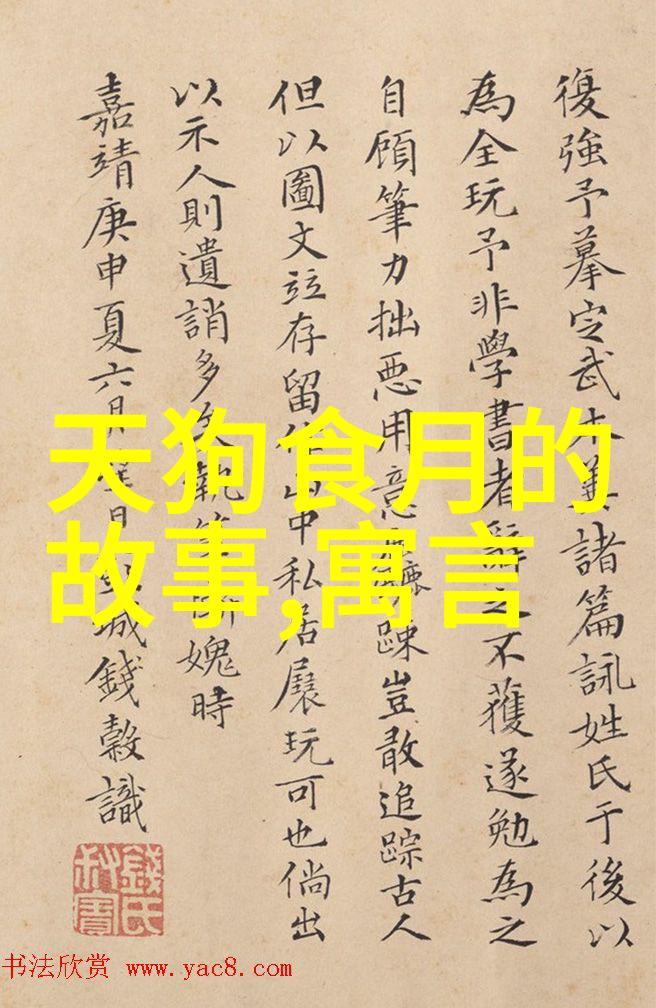 復強予摹定武本並諸篇詠姓氏于後以
為全玩予非學書者辭之不獲遂勉為之
自顧筆力拙惡用意踈豈敢追踪古人
但以圖文竝存留作山中私居展玩可也倘出
以示人則遺誚多矣執筆媿時
嘉靖庚申夏六月日城錢穀識
錢氏
天狗食月的
故事,寓言
书法欣赏 www.yac8.com